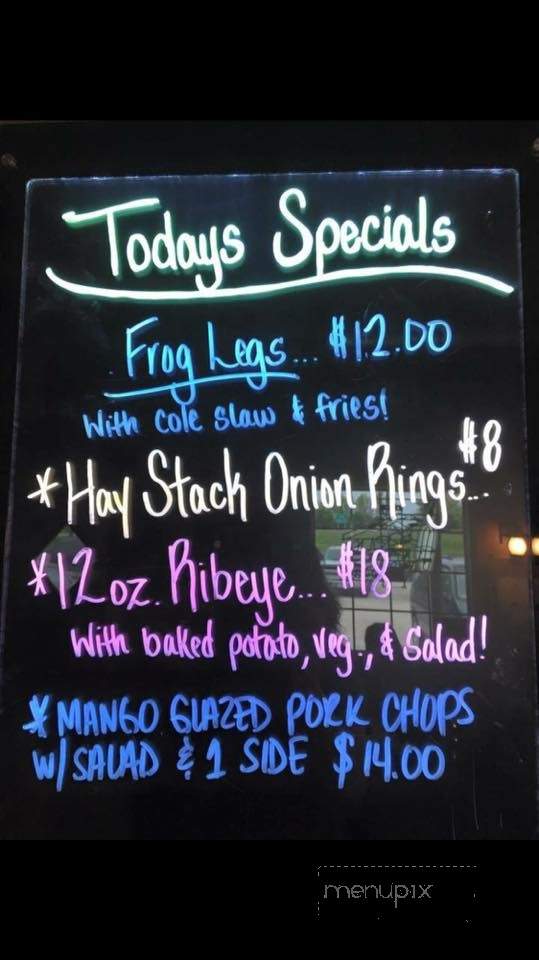 Todays Specials
Frog Legs... $12.00
With Cole Slaw & fries!
*Hay Stack Onion Rings... $8
*12oz. Ribeye... $18
With baked potato, veg., & Salad!
*MANGO GLAZED PORK CHOPS
W/ SALAD & 1 SIDE $14.00
menupix